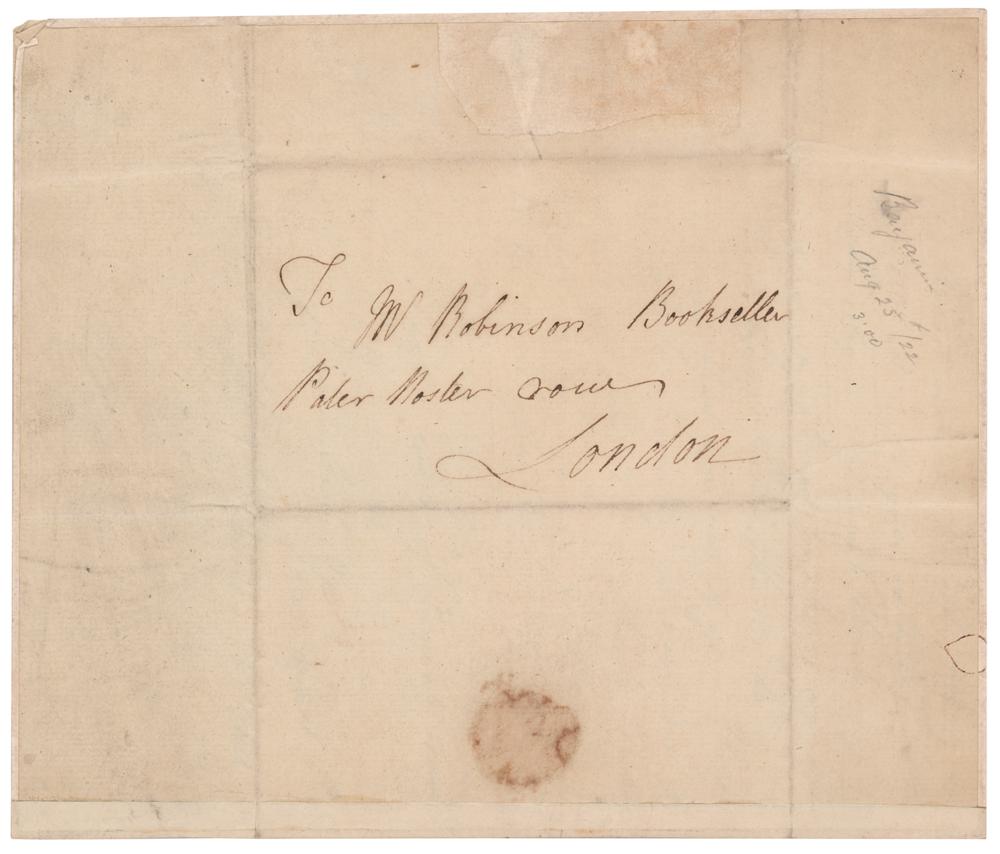 To
Mr Robinson Bookseller
Pater Noster row
London
Benjamin
Aug 25th/22
3.00